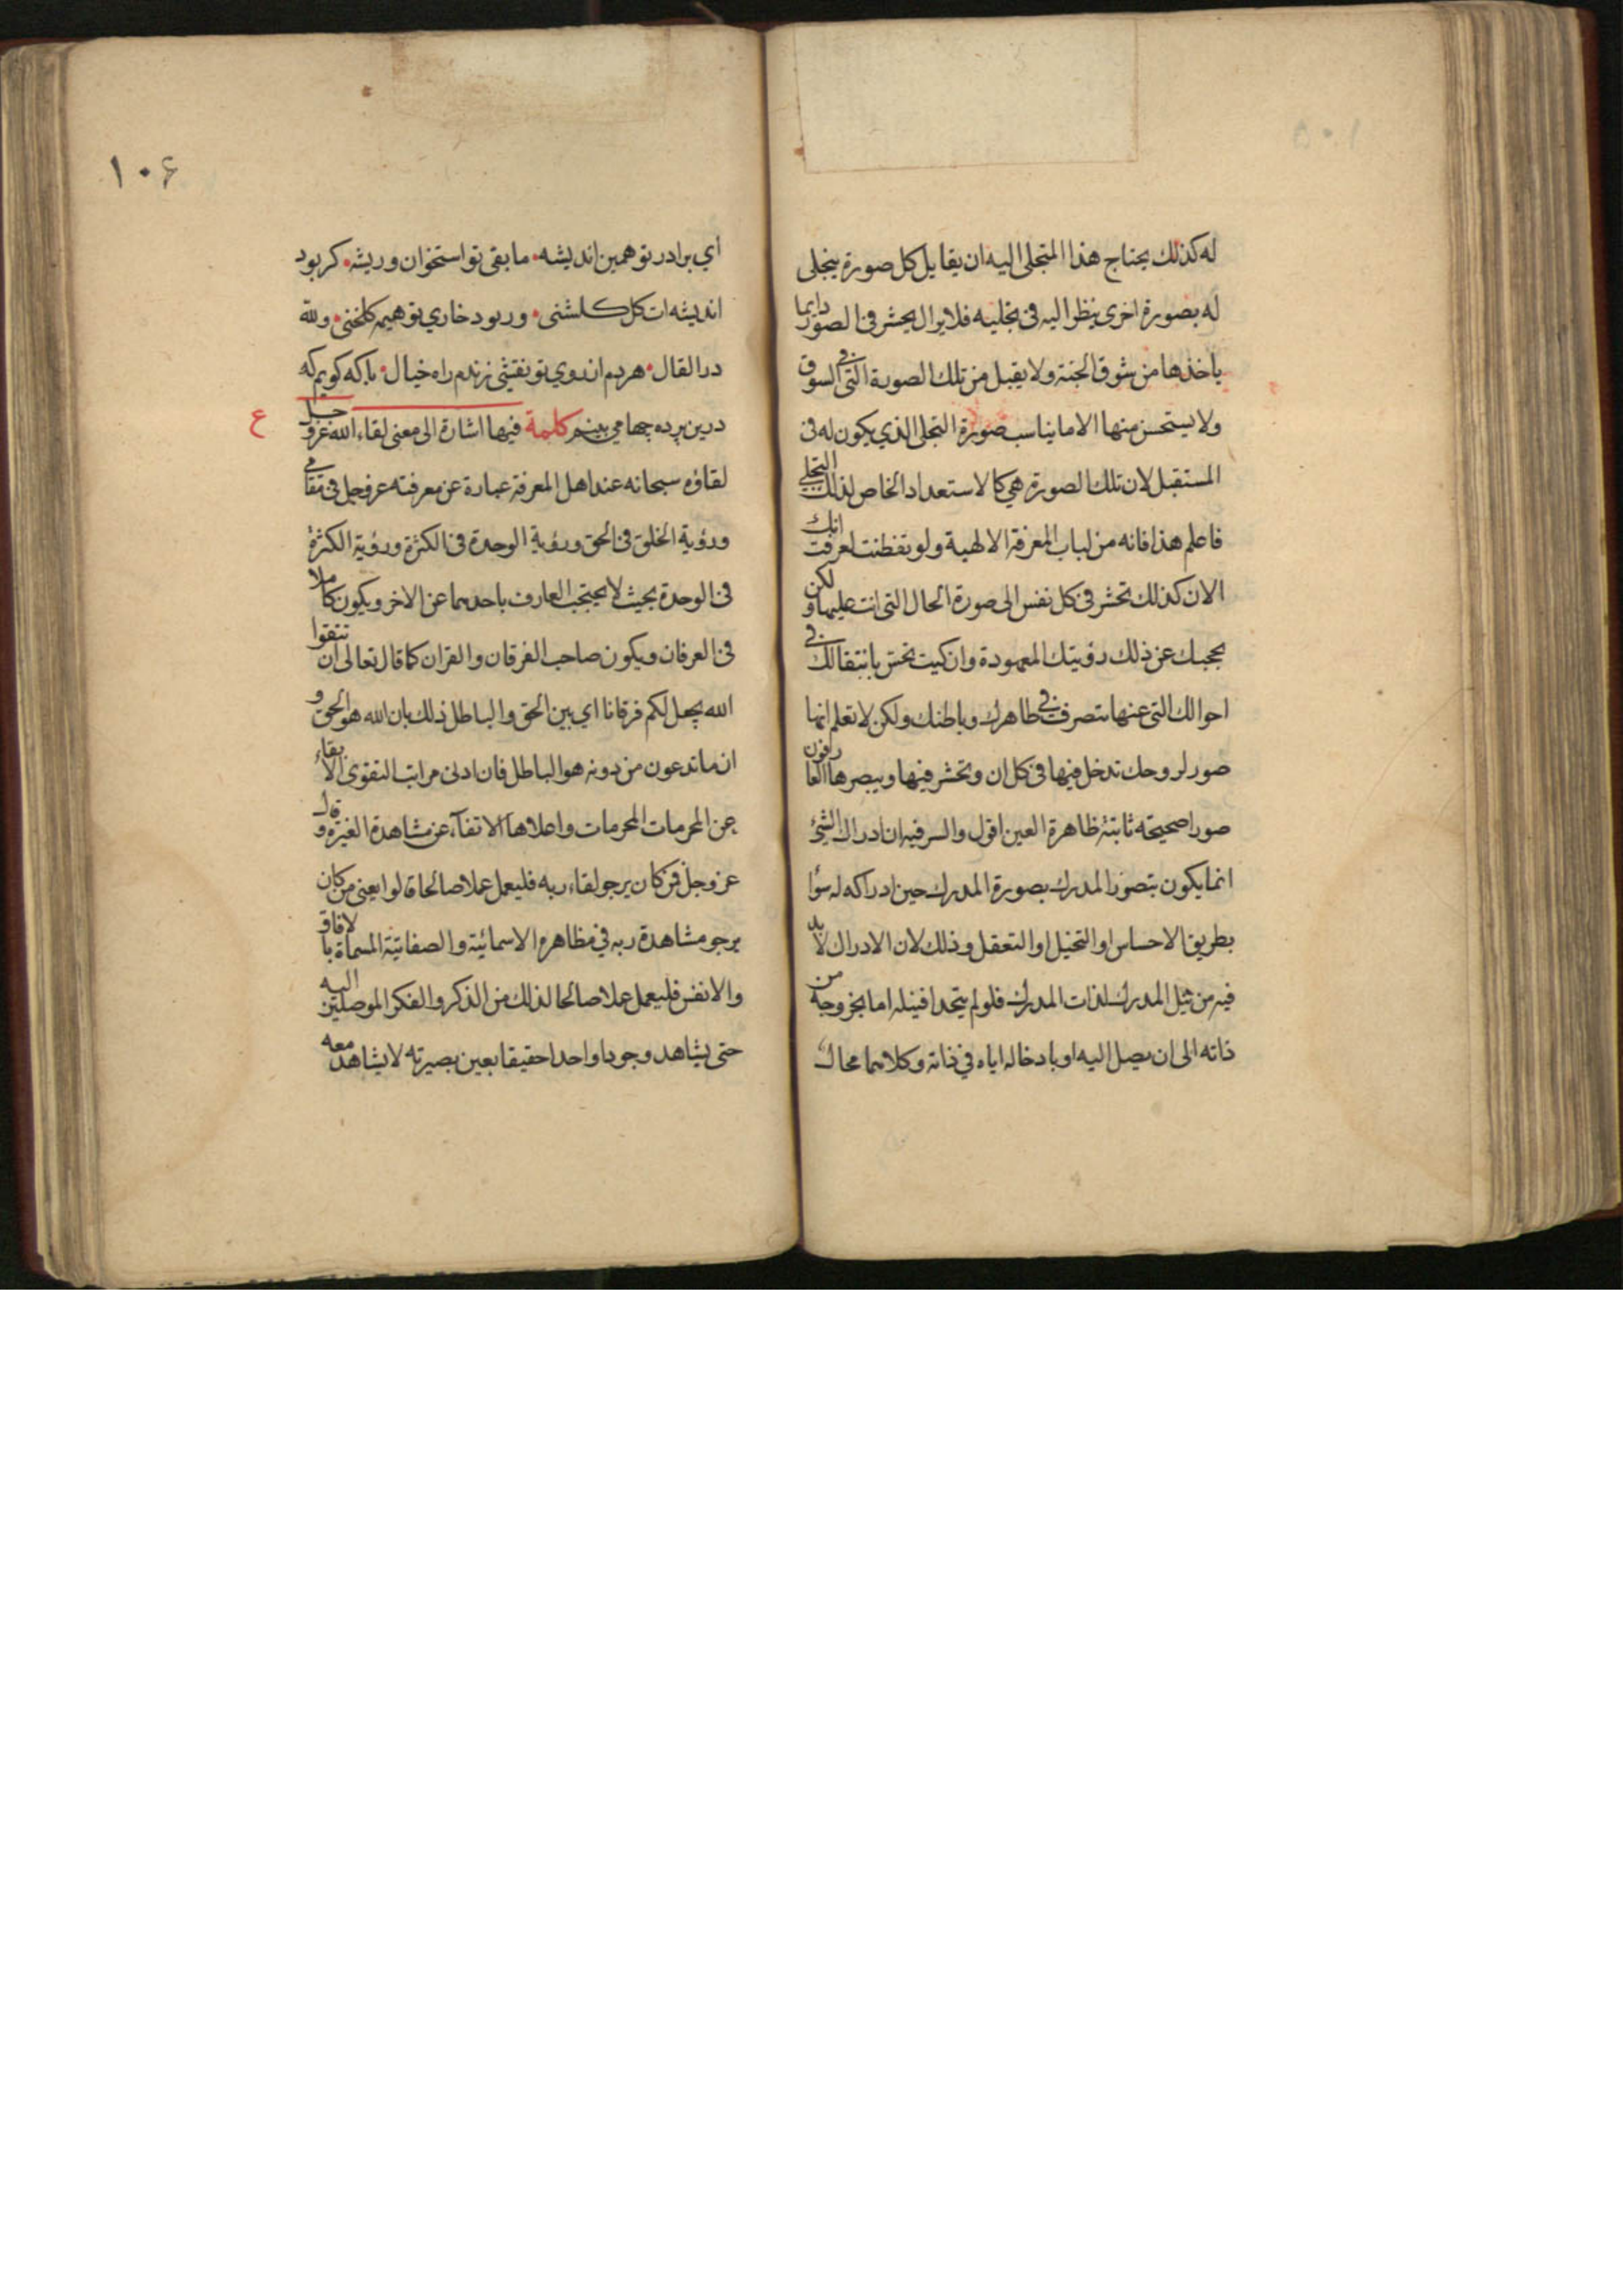 له كذلك يحتاج هذا المتجلى اليه ان يقابل كل صورة يتجلى
له بصورة اخرى ينظر اليه فى تجليه فلا يزال يحشر فى الصور دايما
ياخذها من سوق الجنة ولا يقبل من تلك الصورة التى فى السوق
ولا يستحسن منها الا ما يناسب صورة التجلى الذي يكون له فى
المستقبل لان تلك الصورة هي كالاستعداد الخاص لذلك التجلي
فاعلم هذا فانه من لباب المعرفة الالهية ولو تفطنت لعرفت انك
الان كذلك تحشر فى كل نفس الى صورة الحال التى انت عليها ولكن
يحجبك عن ذلك رؤيتك المعهودة وان كنت تحس بانتقالك في
احوالك التى عنها تتصرف في ظاهرك وباطنك ولكن لا تعلم انها
صور لروحك تدخل فيها فى كل ان وتحشر فيها ويبصرها العارفون
صورا صحيحه ثابتة ظاهرة العين اقول والسر فيه ان ادراك الشئ
انما يكون بتصور المدرك بصورة المدرك حين ادراكه له سؤا
بطريق الاحساس او التخيل او التعقل وذلك لان الادراك لا بد
فيه من نيل المدرك لذات المدرك فلو لم يتحدا فنيله اما بخروجه من
ذاته الى ان يصل اليه او بادخاله اياه في ذاته وكلاهما محال
١٠۶
اي برادر تو همين انديشه ما بقى تو استخوان وريشه كر بود
انديشه ات كل كلشنى وربود خاري تو هيمه كلخنى ولله
در القال هردم از روي تو نقشي زندم راه خيال با كه كويم كه
درين پرده چها مي بينم كلمة فيها اشارة الى معنى لقاء الله عز وجل
ع
لقاؤه سبحانه عند اهل المعرفة عبارة عن معرفته عز وجل فى
ورؤية الخلق فى الحق ورؤية الوحدة فى الكثرة ورؤية الكثرة
فى الوحدة بحيث لا يحتجب العارف باحدهما عن الاخر ويكون كاملا
فى العرفان ويكون صاحب الفرقان والقران كما قال تعالى ان تتقوا
الله يجعل لكم فرقانا اي بين الحق والباطل ذلك بان الله هو الحق و
ان ما تدعون من دونه هو الباطل فان ادنى مراتب التقوى الاتقاء
عن المحرمات المحرمات واعلاها الاتقآء عن مشاهدة الغير وقال
عز وجل فمن كان يرجو لقاء ربه فليعمل عملا صالحا قالوا يعنى من كان
يرجو مشاهدة ربه في مظاهره الاسمائية والصفاتية المسماة بالافاق
والانفس فليعمل عملا صالحا لذلك من الذكر والفكر الموصلين اليه
حتى يشاهد وجودا واحدا حقيقا بعين بصيرته لا يشاهد معه